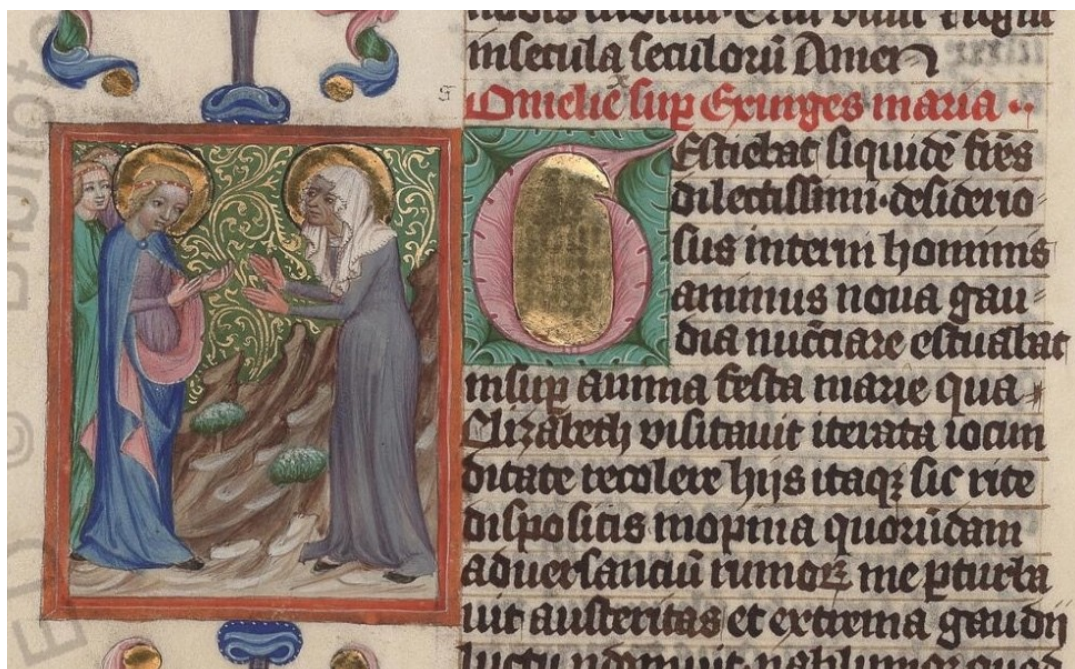 insecula seculorū Amen
Omelie suꝑ Exurges maria
Gestiebat siquidē frēs
dilectissimi desiderio
sus interin hominis
animus noua gau
dia nūctiare estuabat
insuꝑ festa marie qua
Elizabeth visitauit iterata iocun
ditate recolere hijs itaqꝫ sic rite
dispositis inopina quorūdam
aduersanciū rumorꝫ me ꝑturba
uit austeritas et extrema gaudij
luctu